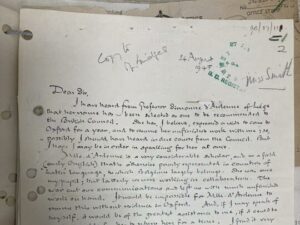 Copy to
24 August
1945
Miss Smith
2
Dear Sir,
I have heard from Professor Simonne d'Ardenne of Liège
that her name has been selected as one to be recommended to
the British Council. She has, I believe, expressed a wish to come to
Oxford for a year, and to resume her unfinished work with me; so,
possibly I should have heard in due course from the Council. But
I hope I may be in order in speaking for her at once.
Mlle d'Ardenne is a very considerable scholar, and in a field
(early English) that is otherwise poorly represented in countries of
Latin language, to which Belgium largely belongs. She was once
my pupil, but latterly we were working in collaboration. The
war cut our communications and left us with much unfinished
work on hand. It would be impossible for Mlle d'Ardenne to
resume this without residence in Oxford. And, if I may speak of
myself, it would be of the greatest assistance to me, if it could be
to have her here for a time. I find a very